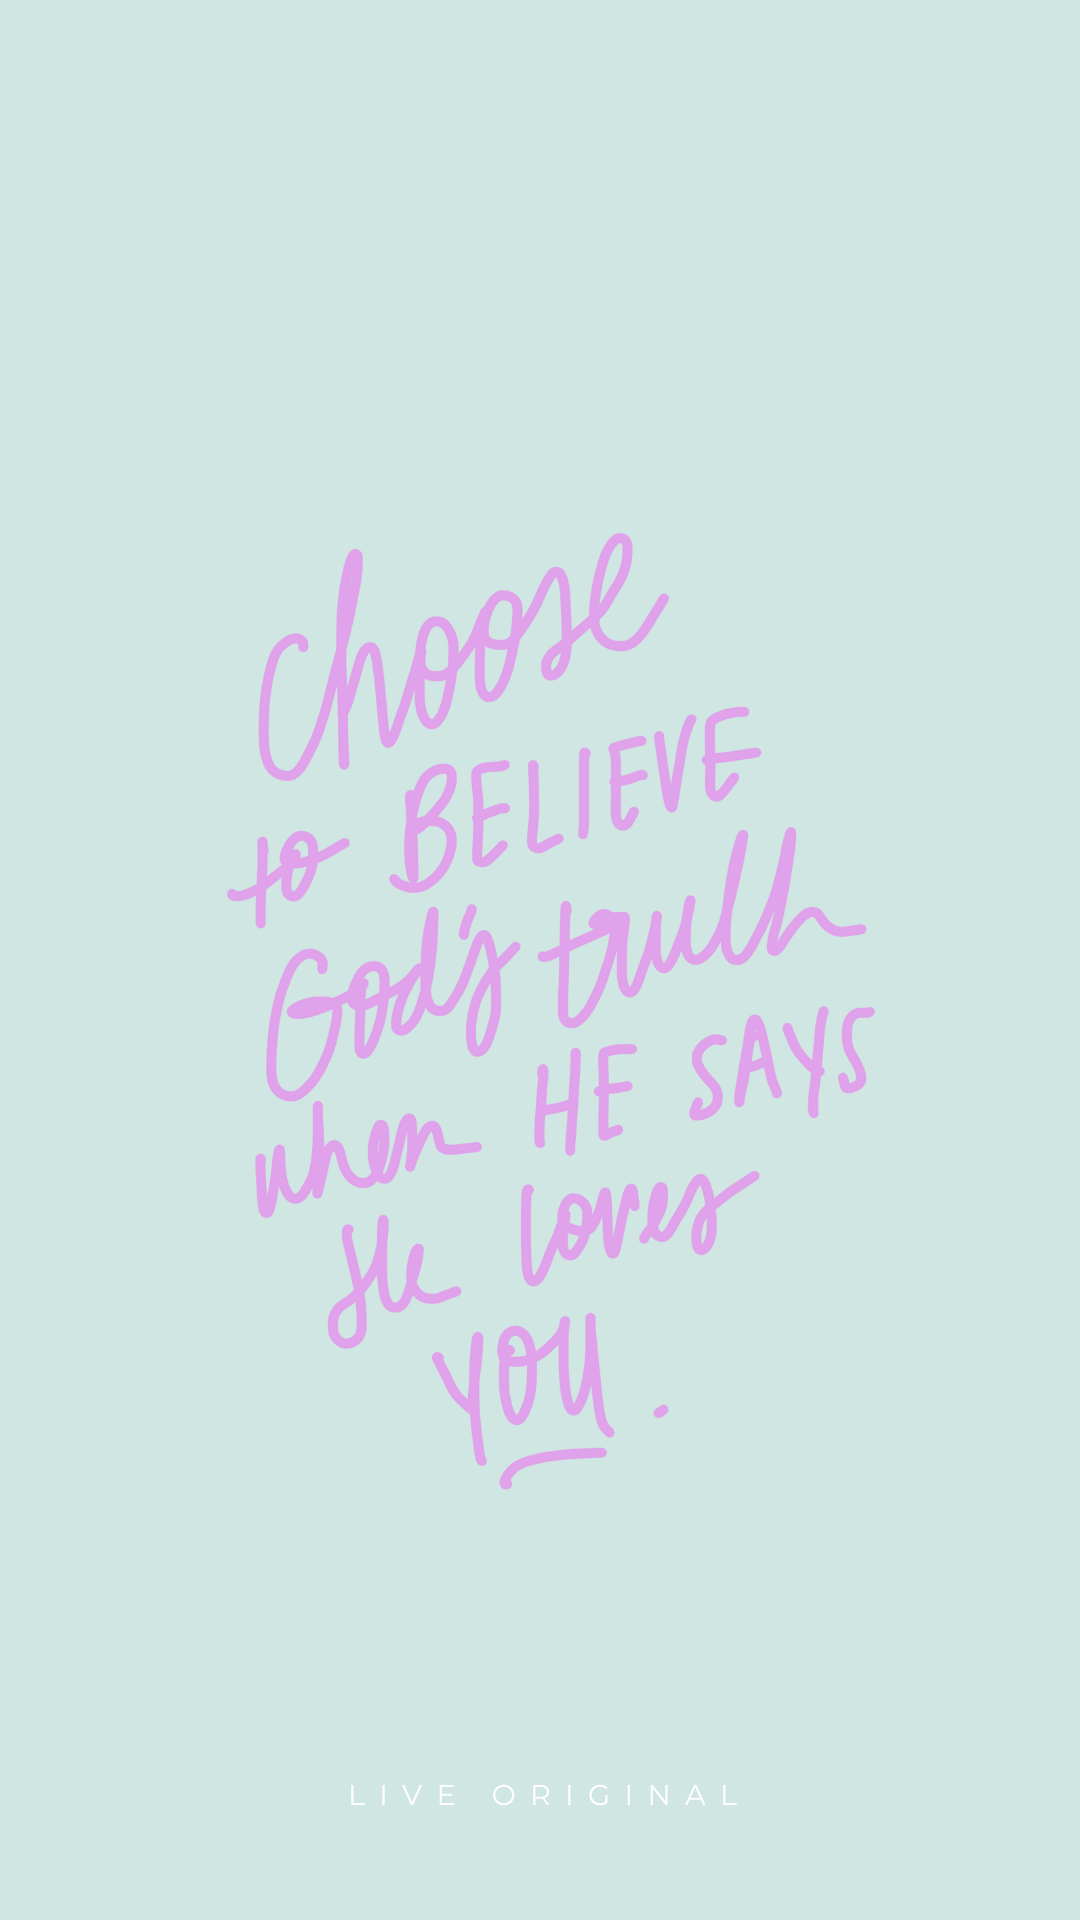 Choose
to BELIEVE
God's truth
when HE SAYS
He loves
YOU.
LIVE ORIGINAL